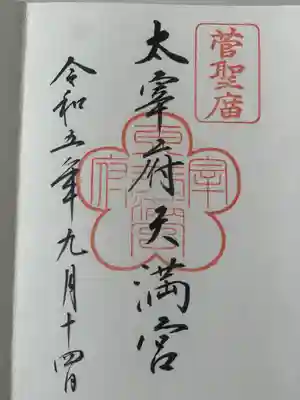 菅聖庿
太宰府天満宮
令和五年九月十四日